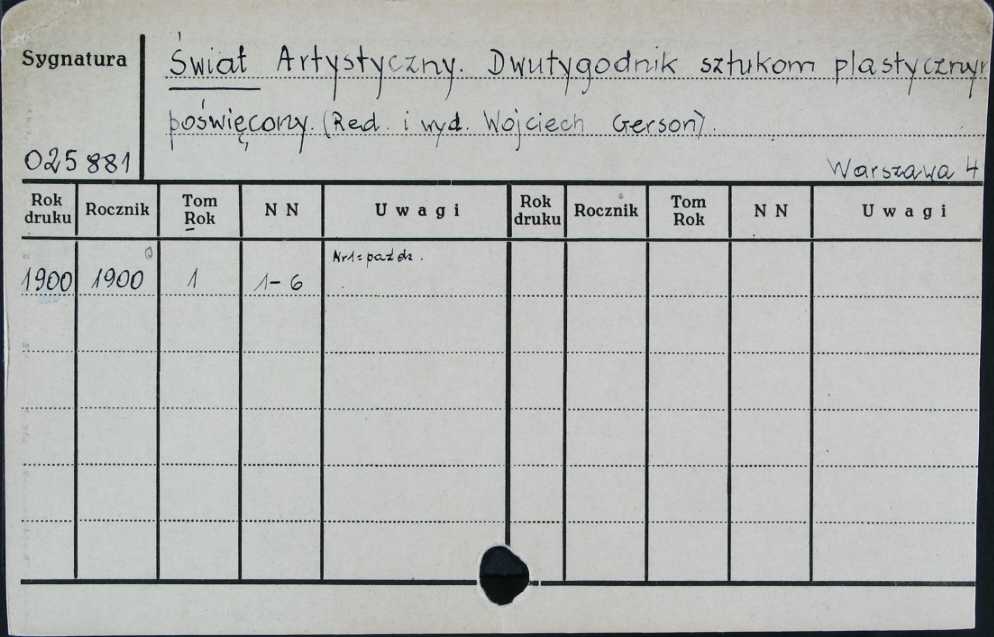 Sygnatura
Świat Artystyczny. Dwutygodnik sztukom plastycznym
poświęcony. (Red. i wyd. Wojciech Gerson).
025881
Warszawa 4
Rok druku Rocznik Tom Rok N N Uwagi Rok druku Rocznik Tom Rok N N Uwagi
Nr1=paźdz.
1900 1900 1 1-6